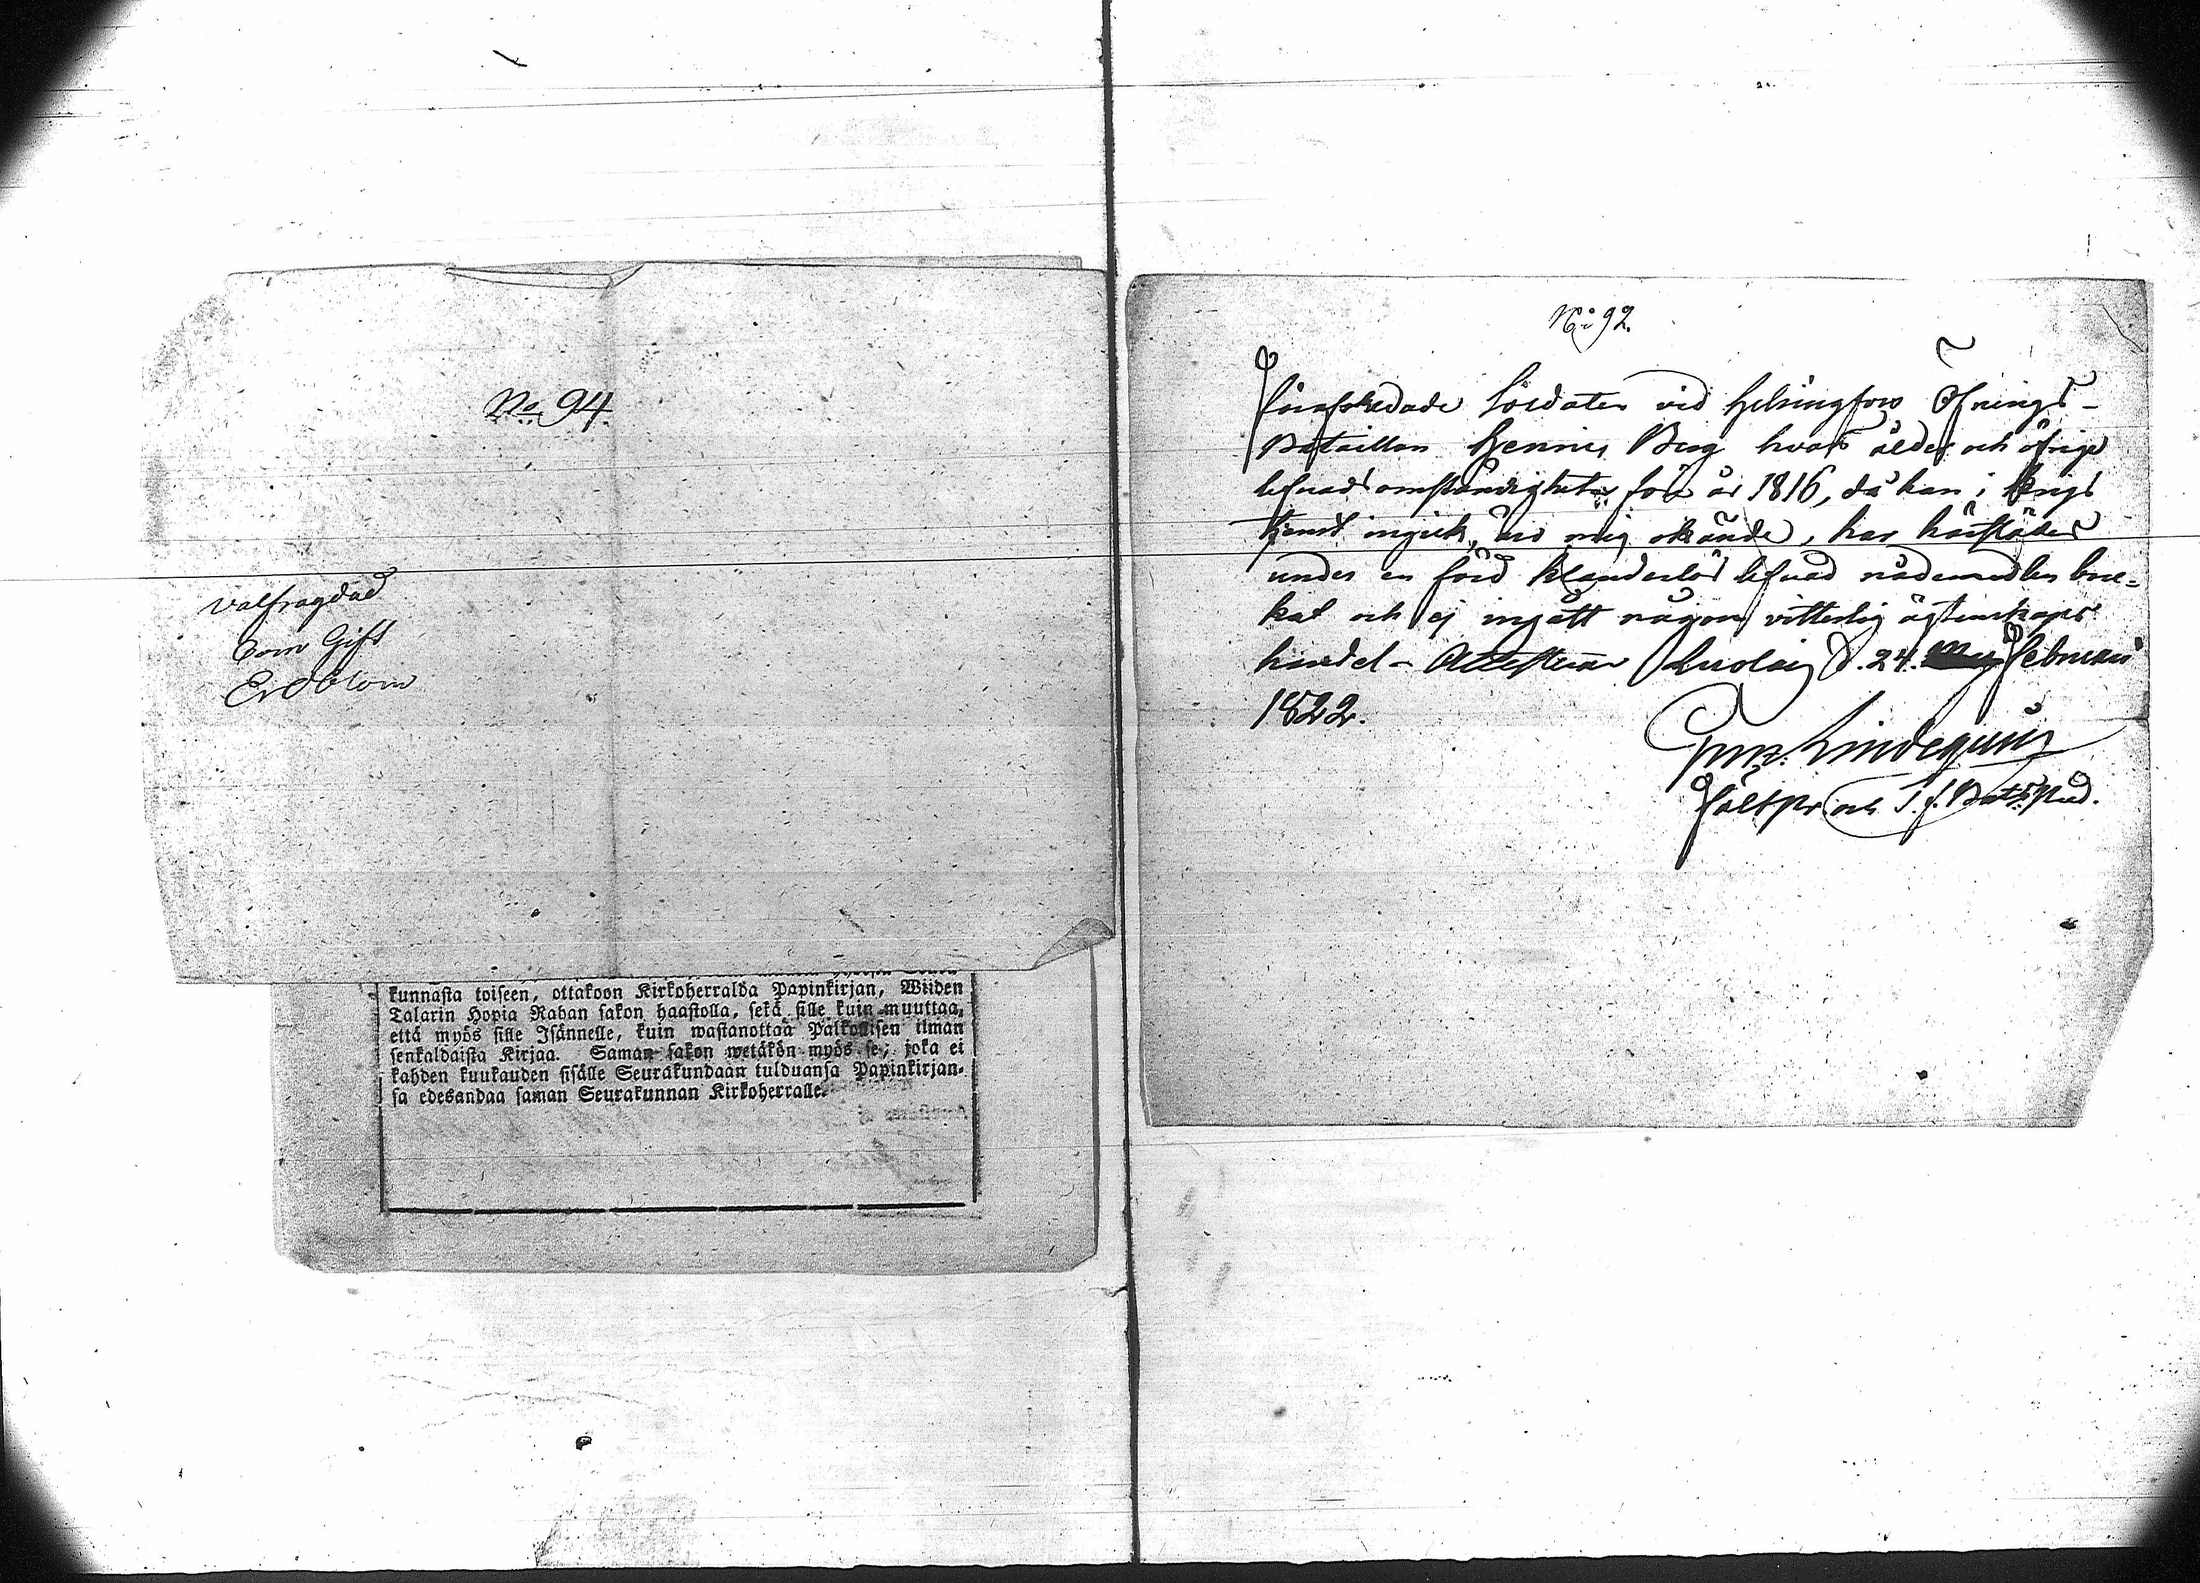 No 94.
Valfragdad
Som Gift
Eneblom
kunnasta toiseen, ottakoon Kirkoherralda Papinkirjan, Wiiden
Talarin Hopia Rahan sakon haastolla, sekä sille kuin muuttaa,
että myös sille Isännelle, kuin wastanottaa Palkollisen ilman
senkaldaista Kirjaa. Saman sakon wetäkön myös se, joka ei
kahden kuukauden sisälle Seurakundaan tulduansa Papinkirjan-
sa edesandaa saman Seurakunnan Kirkoherralle.
No 92.
Förafskedade Soldaten vid Helsingfors Öfnings-
Bataillon Hennric Berg hvars ålder och öfrige
lefnads omständigheter för år 1816, då han i Krigs
tjenst ingick, äro mig okände, har härstädes
under en förd klanderlös lefnad nådemedlen bru-
kat och ej ingått någon vitterlig ägtenskaps
handel - Attesterar d. 24. Februari
1822.
Lindequist
Fältpr. och T. f. Batt. Pred.